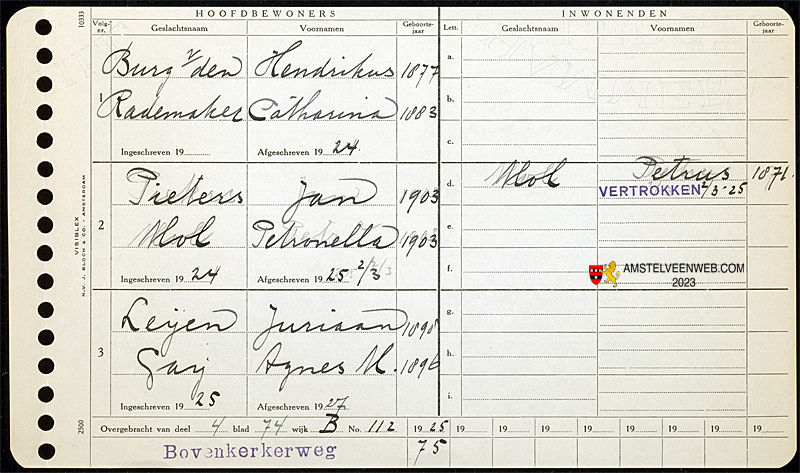 HOOFDBEWONERS INWONENDEN
Volg-nr. Geslachtsnaam Voornamen Geboorte-jaar Lett. Geslachtsnaam Voornamen Geboorte-jaar
10333
a.
Burg v/den Hendrikus 1877
b.
1 Rademaker Catharina 1883
c.
Ingeschreven 19 Afgeschreven 19 24
d. Mol Petrus 1871
VERTROKKEN 2/3-25
Pieters Jan 1903
e.
2 Mol Petronella 1903
f.
Ingeschreven 19 24 Afgeschreven 19 25 2/3
AMSTELVEENWEB.COM
2023
VISIBLEX
N.V. J. BLOCH & CO. - AMSTERDAM
g.
Leijen Juriaan 1898
h.
3 Agnes M. 1896
i.
Ingeschreven 19 25 Afgeschreven 19 27
2500
Overgebracht van deel 4 blad 74 wijk B No. 112 19 25 19 19 19 19 19 19 19 19
Bovenkerkerweg 75